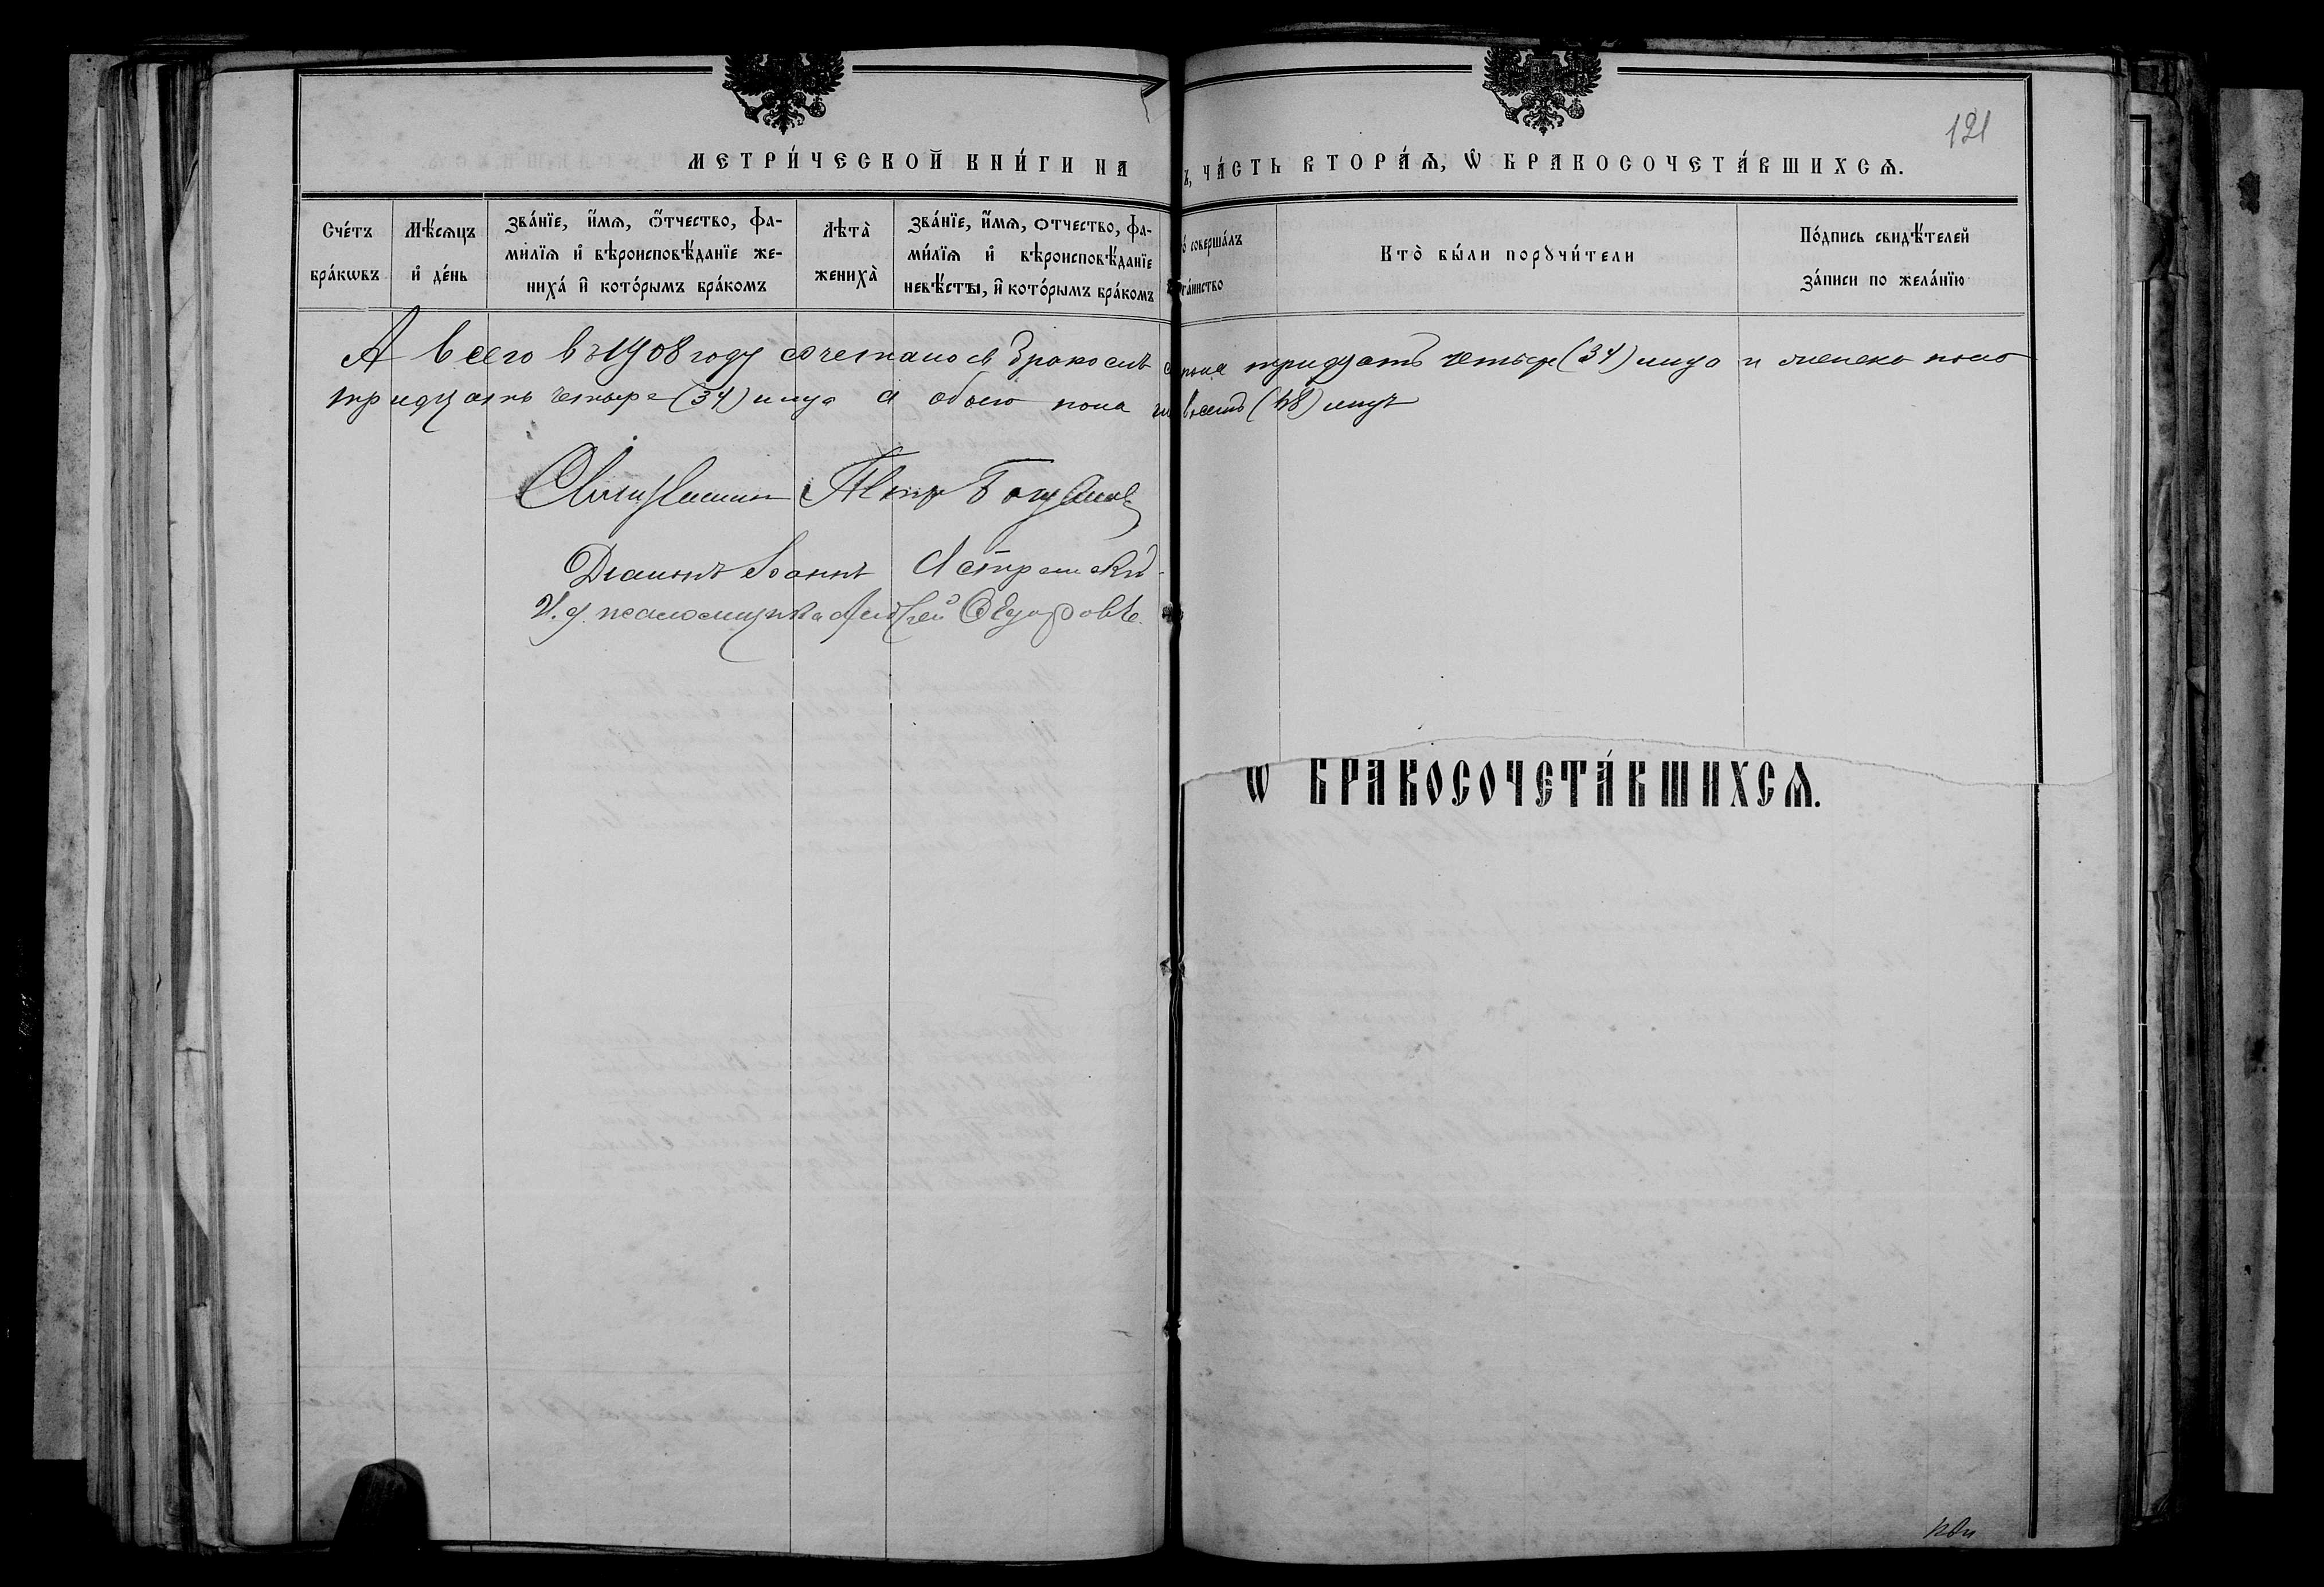 121
МЕТРИ́ЧЕСКОЙ КНИ́ГИ НА
ъ, ЧА́СТЬ ВТОРА́Ѧ, Ѡ БРАКОСОЧЕТА́ВШИХСѦ.
Сче́тъ бра́кѡвъ
Мѣ́сѧцъ и҆ де́нь
Зва́нїе, и҆́мѧ, ѻ҆́тчество, фами́лїѧ и҆ вѣроисповѣ́данїе жениха́ и҆ кото́рымъ бра́комъ
Лѣта̀ жениха̀
Зва́нїе, и҆́мѧ, ѻтчество, фами́лїѧ и҆ вѣроисповѣ́данїе невѣ́сты, и҆ кото́рымъ бра́комъ
о́ соверша́лъ та́инство
Кто̀ бы́ли порꙋчи́тели
По́дпись свидѣ́телей за́писи по жела́нїю
А всего въ 1908 году сочеталось бракомъ тридцать четыре (34) лица и женска пола
тридцать четыре (34) лица а обоего пола восемь (68) лицъ
Священникъ Петръ
Діаконъ Іоаннъ
И. д. псаломщика Андрей
Ѡ БРАКОСОЧЕТА́ВШИХСѦ.